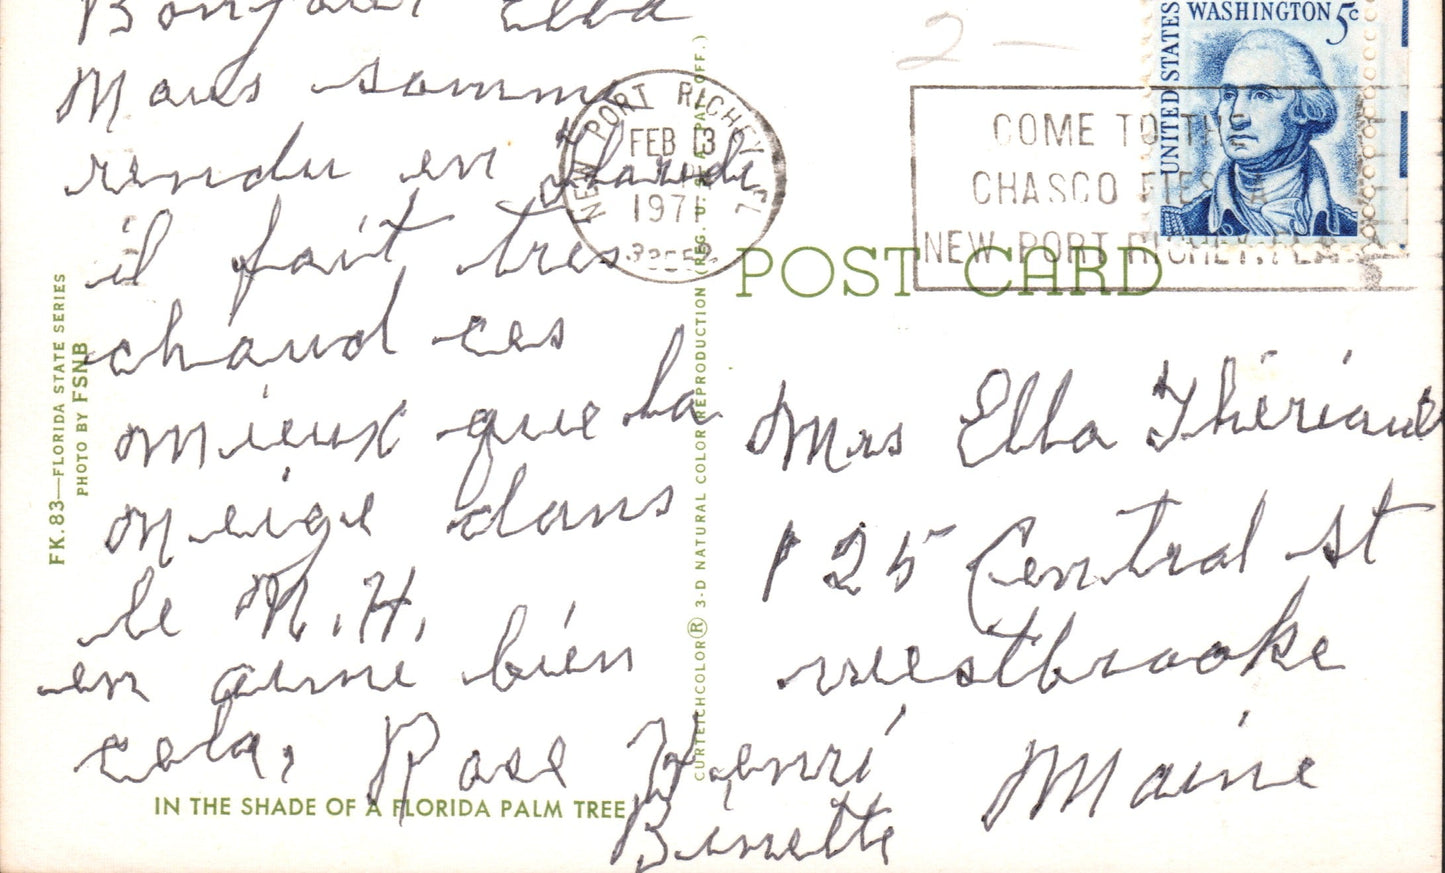 Bonjour Ella
Nous somme
rendu en Floridi
il fait tres
chaud ces
mieux que la
neige dans
le N.H.
en aime bien
cela, Rose Henri
Binette
IN THE SHADE OF A FLORIDA PALM TREE
FK.83—FLORIDA STATE SERIES
PHOTO BY FSNB
CURTEICHCOLOR® 3-D NATURAL COLOR REPRODUCTION (REG. U.S.A. PAT. OFF.)
NEW PORT RICHEY, FL
FEB 13
1971
33552
2 —
COME TO THE
CHASCO FIESTA
NEW PORT RICHEY, FLA.
UNITED STATES
WASHINGTON 5c
POST CARD
Mrs Ella Theriault
125 Central St
Westbrooke
Maine